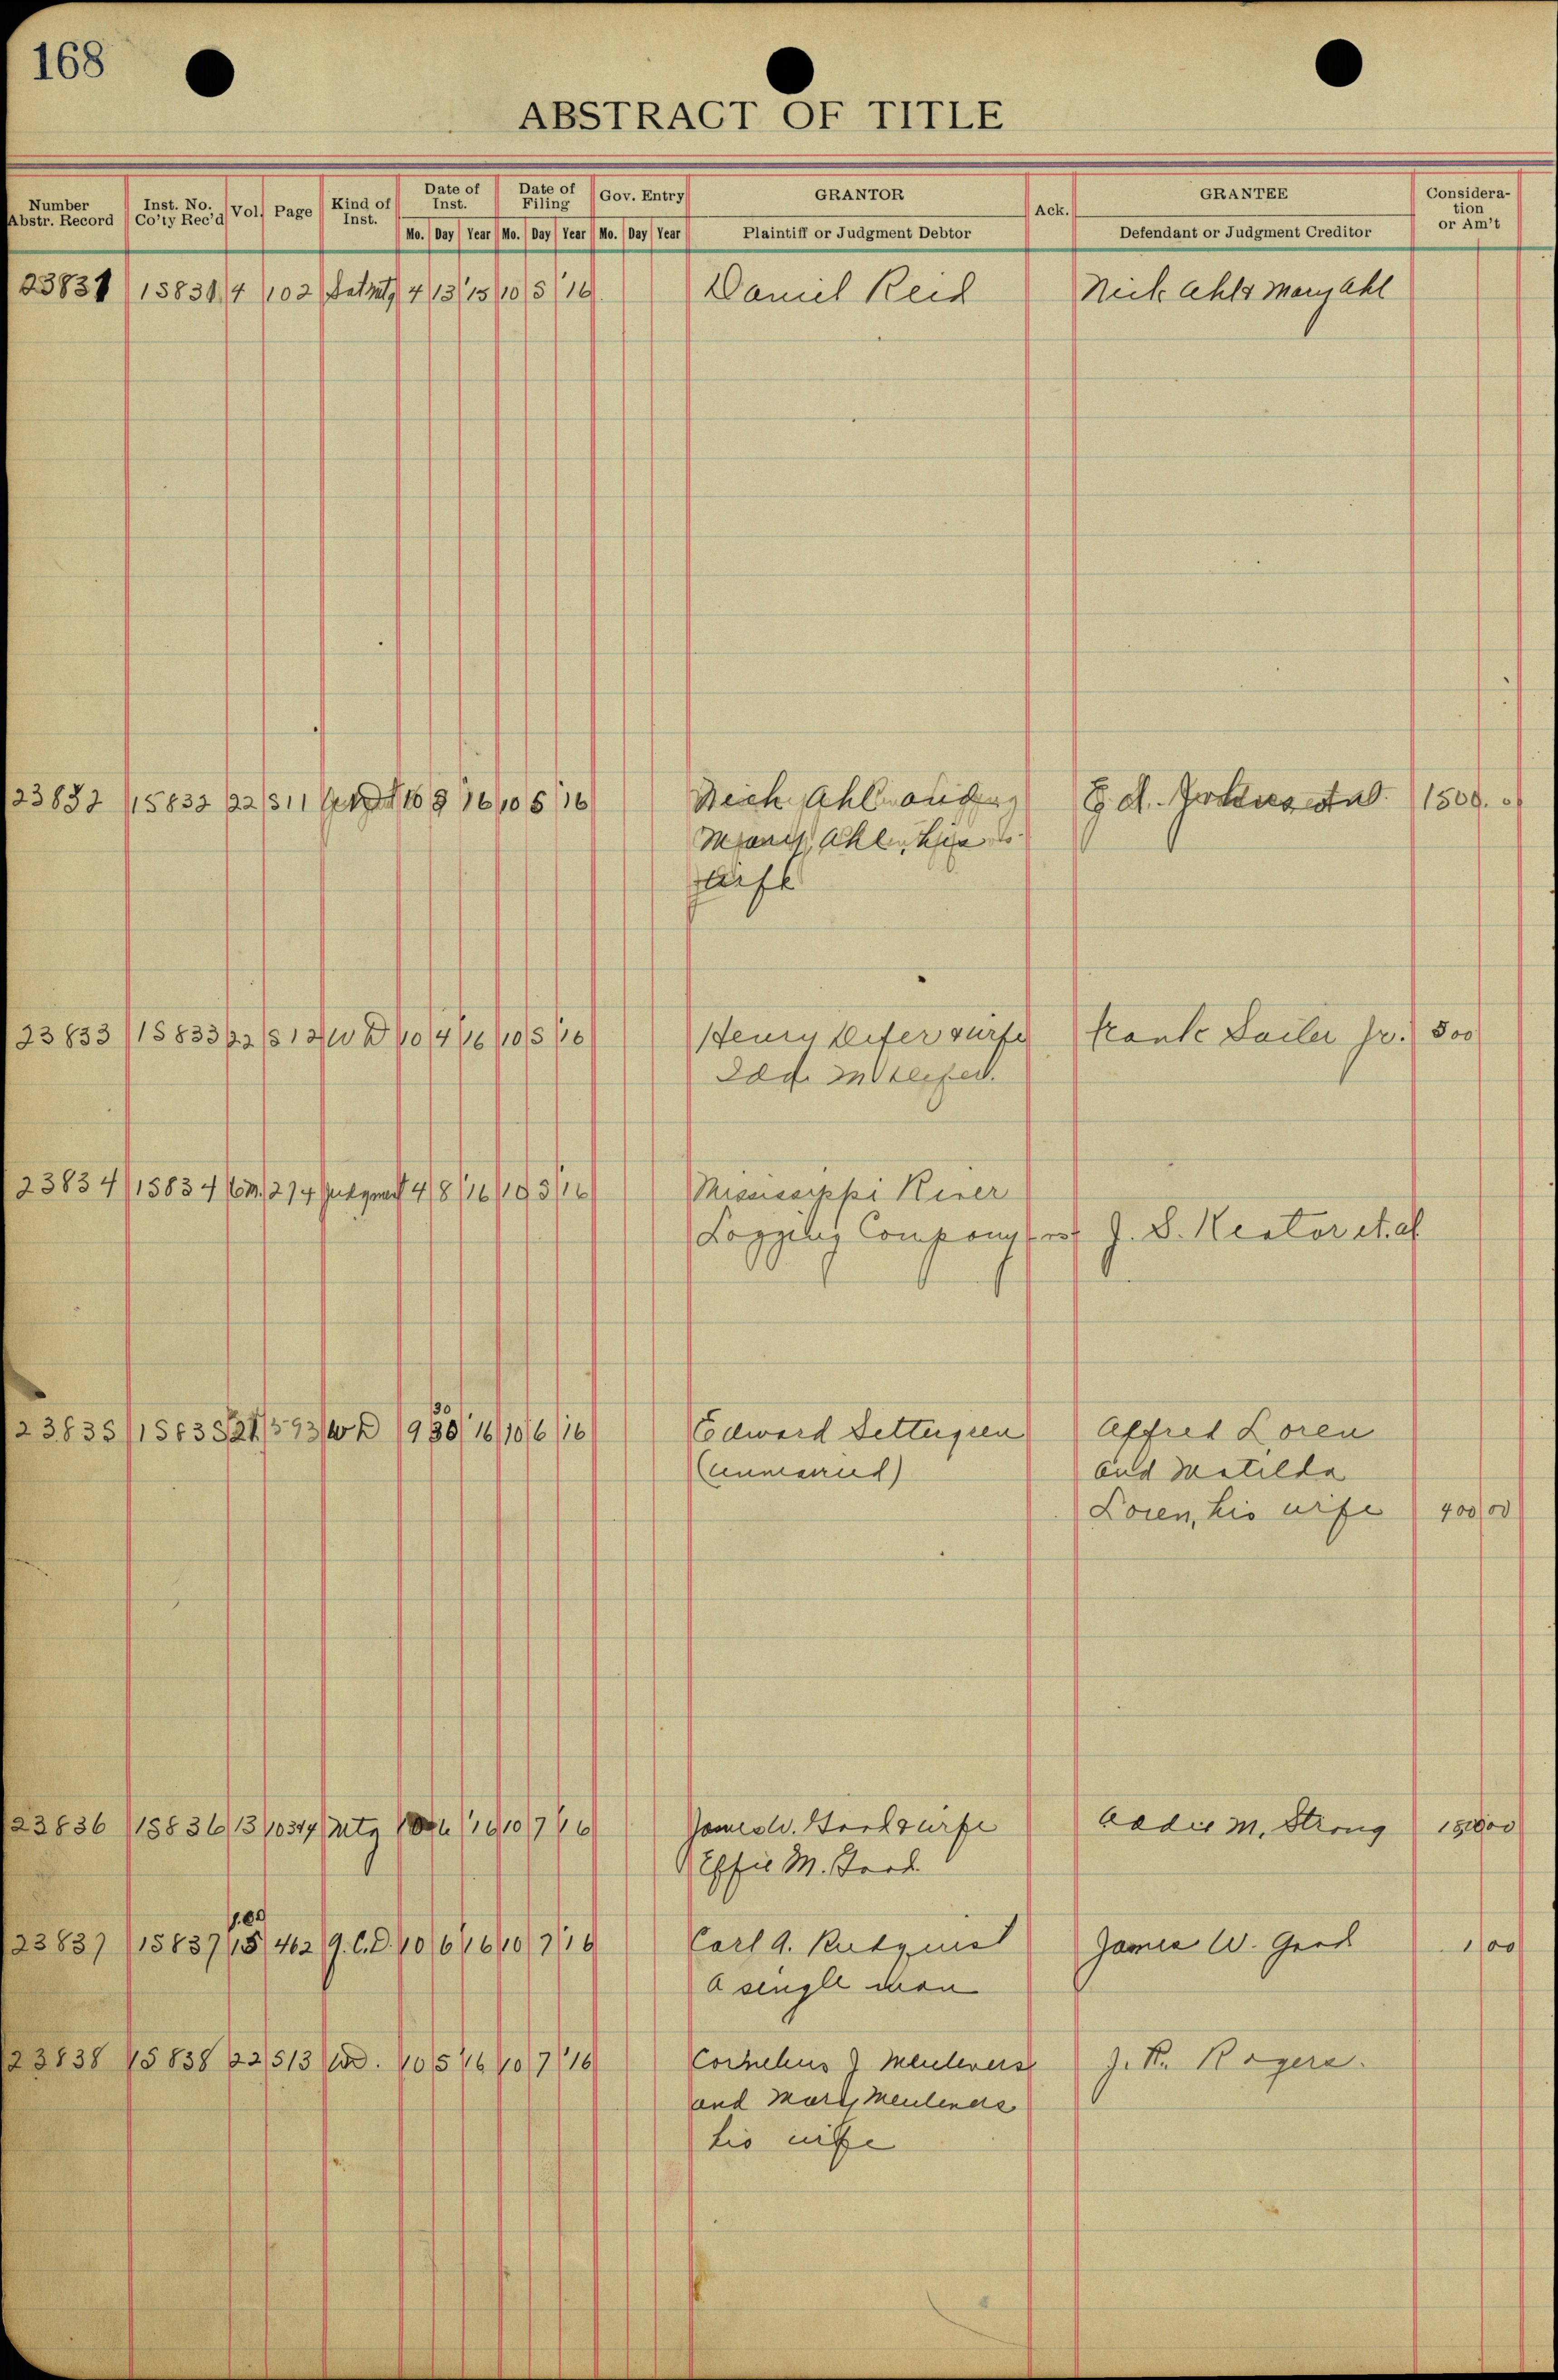 168
ABSTRACT OF TITLE
Number Abstr. Record Inst. No. Co'ty Rec'd Vol. Page Kind of Inst. Date of Inst. Date of Filing Gov. Entry GRANTOR Ack. GRANTEE Consideration or Am't
Mo. Day Year Mo. Day Year Mo. Day Year Plaintiff or Judgment Debtor Defendant or Judgment Creditor
23831 15831 4 102 4 13 '15 10 5 '16 Daniel Reid Nick Ahl & Mary Ahl
23832 15832 22 511 '16 10 5 '16 Ahl 1500.
Ahl his
wife
23833 15833 22 512 W D 10 4 '16 10 5 '16 Henry & wife Frank Sailer Jr. 500
Ida M
23834 15834 274 Judgment 4 8 '16 10 5 '16 Mississippi River
Logging Company J. S. et. al
30
23835 15835 21 593 W D 9 30 '16 10 6 '16 Edward (Unmarried) Alfred Loren
and Matilda
Loren, his wife 400 00
23836 15836 13 Mtg '16 10 7 '16 James W. & wife Addie M. Strong
Effie M.
23837 15837 15 462 Q. C. D. 10 6 '16 10 7 '16 Carl A. James W. 1 00
a single man
23838 15838 22 513 W D. 10 5 '16 10 7 '16 Cornelius J Meulevers J. R. Rogers.
and Mary Meulevers
his wife